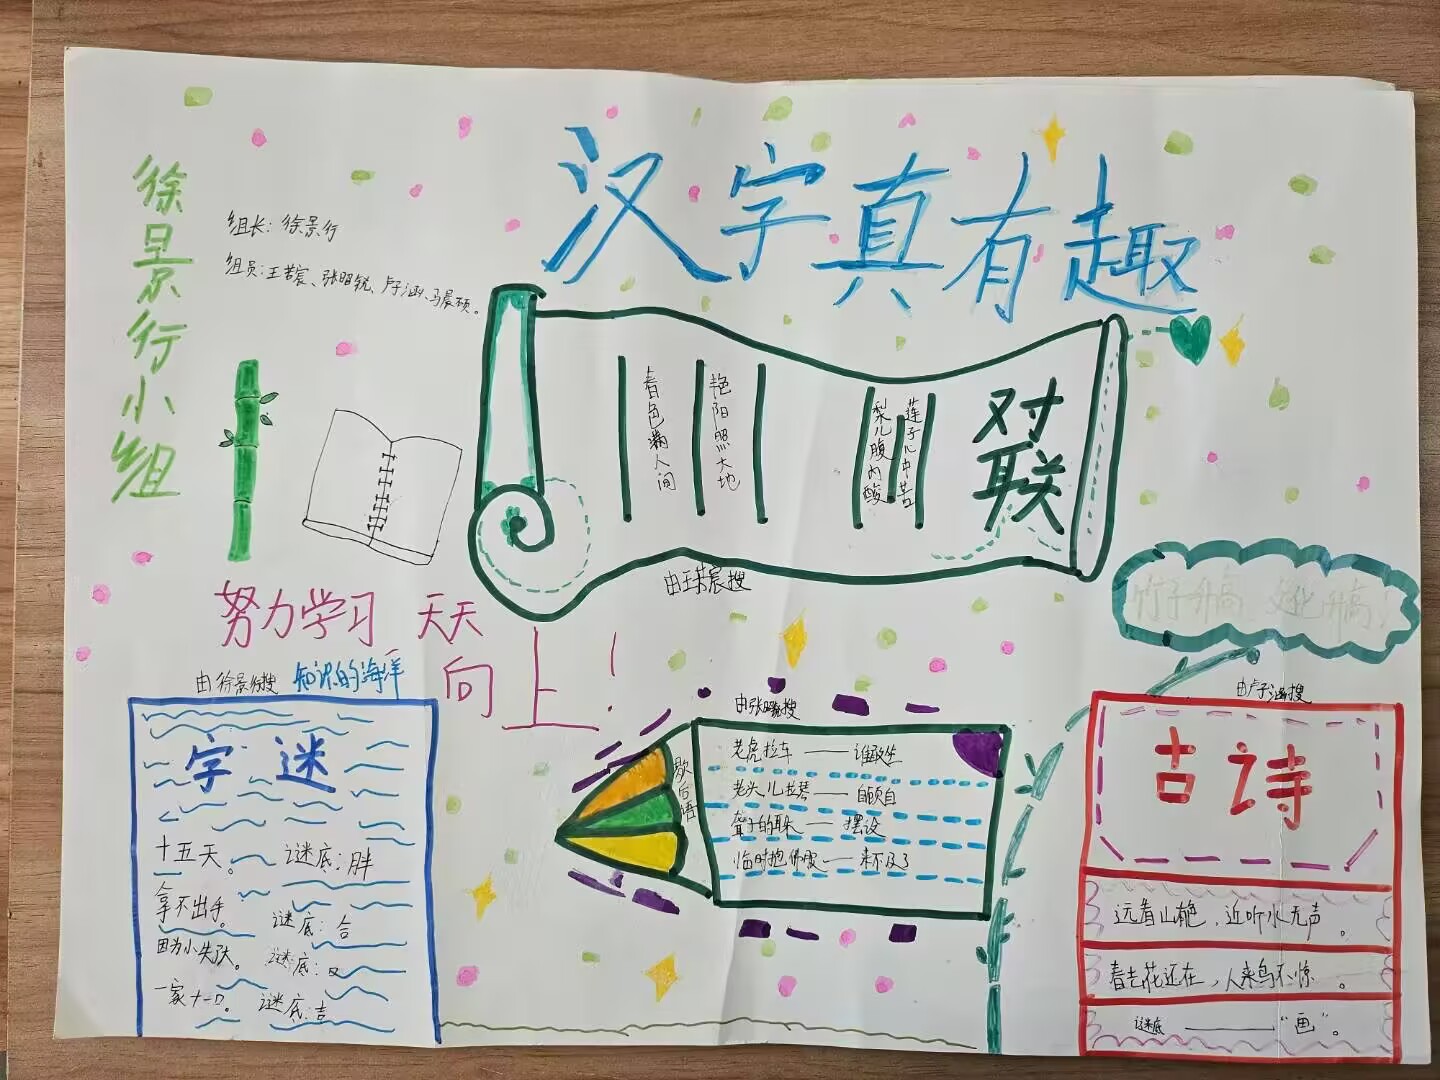 汉字真有趣
徐景行小组
组长：徐景行
组员：王若宸、张昭锐、卢子涵、马晨硕。
对联
莲子心中苦
梨儿腹内酸
艳阳照大地
春色满人间
竹子升高，文化升高！
努力学习 天天
向上！
由徐景行搜
知识的海洋
字谜
十五天。 谜底：胖
拿不出手。 谜底：合
因为小失大。
一家十一口。 谜底：吉
歇后语
老虎拉车——谁敢坐
老头儿拉琴——自顾自
聋子的耳朵——摆设
临时抱佛脚——来不及了
由卢子涵搜
古诗
远看山有色，近听水无声。
春去花还在，人来鸟不惊。
谜底——“画”。